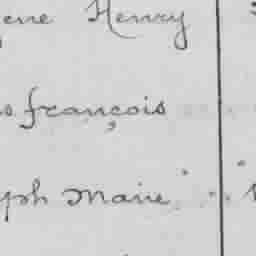 ene Henry
s françois
ph Marie "